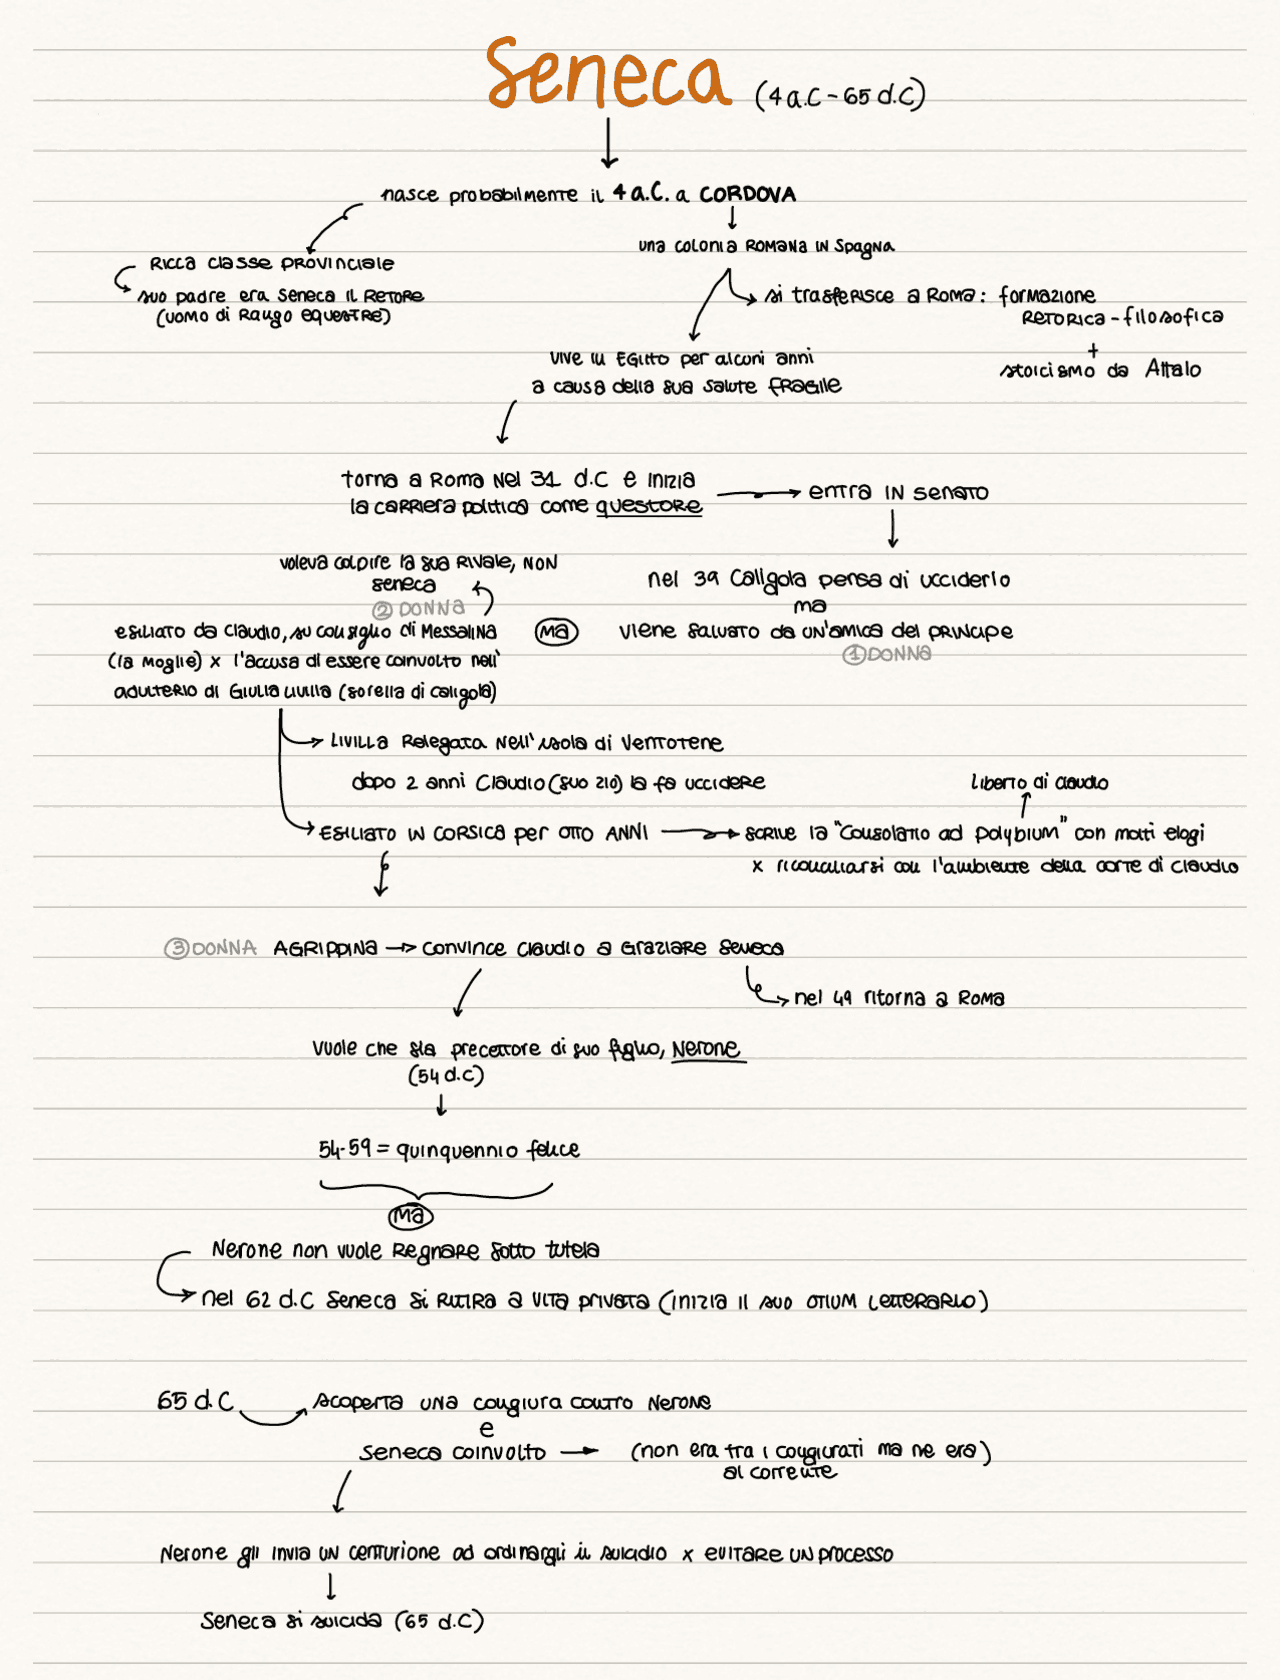 Seneca (4 a.C - 65 d.C)
nasce probabilmente il 4 a.C. a CORDOVA
una colonia ROMANA IN Spagna
RICCA classe PROVINCIALE
suo padre era Seneca IL RETORE
(uomo di Rango equestre)
si trasferisce a Roma: formazione
RETORICA - filosofica
+
stoicismo da Attalo
vive in EGITTO per alcuni anni
a causa della sua salute FRAGILE
torna a Roma nel 31 d.C e inizia
la CARRIERA politica come questore
entra IN senato
nel 39 Caligola pensa di ucciderlo
ma
viene salvato da UN'amica del PRINCIPE
① DONNA
ma
voleva colpire la sua RIVALE, NON
seneca
② DONNA
esiliato da Claudio, su consiglio di Messalina
(la moglie) x l'accusa di essere coinvolto nell'
adulterio di Giulia Livilla (sorella di caligola)
LIVILLA Relegata nell'isola di Ventotene
dopo 2 anni Claudio (suo zio) la fa uccidere
liberto di claudio
ESILIATO IN CORSICA per OTTO ANNI
scrive la "Consolatio ad Polybium" con molti elogi
x riconciliarsi con l'ambiente della corte di Claudio
③ DONNA AGRIPPINA → convince claudio a Graziare Seneca
nel 49 ritorna a Roma
Vuole che sia precettore di suo figlio, Nerone
(54 d.C)
54-59 = quinquennio felice
ma
Nerone non vuole Regnare sotto tutela
nel 62 d.C Seneca si RITIRA a VITA privata (inizia il suo OTIUM LETTERARIO)
65 d.C scoperta una congiura contro Nerone
e
Seneca coinvolto → (non era tra i congiurati ma ne era)
al corrente
Nerone gli invia un centurione ad ordinargli il suicidio x EVITARE UN processo
Seneca si suicida (65 d.C)